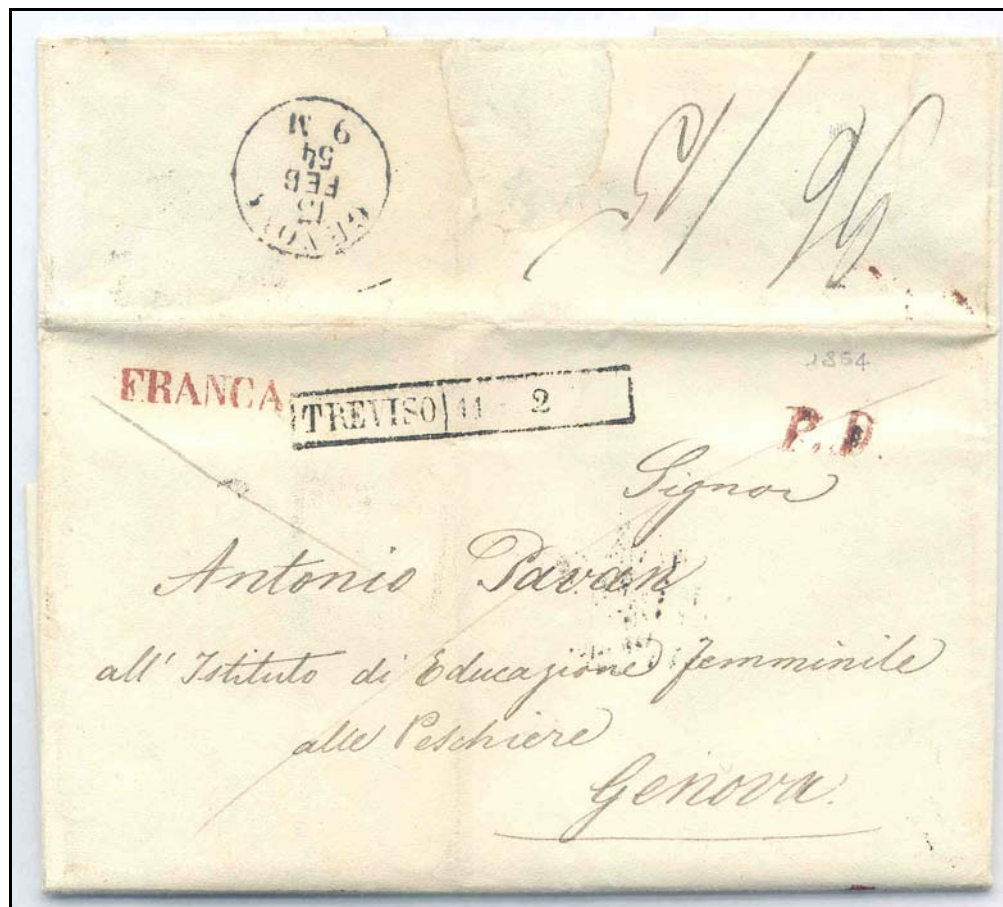 GENOVA
13
FEB
54
9 M
96
1854
FRANCA
TREVISO 11 2
P.D.
Signor
Antonio Pavan
all' Istituto di Educazione femminile
alle Peschiere
Genova.